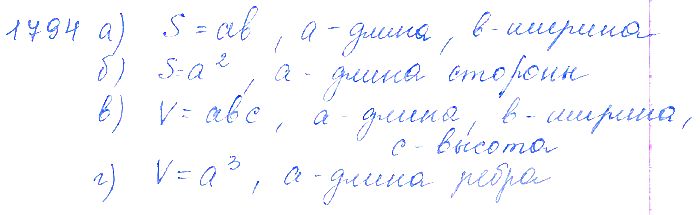 1794 а) S = ab, a - длина, b - ширина
б) S = a², a - длина стороны
в) V = abc, a - длина, b - ширина,
c - высота
г) V = a³, a - длина ребра